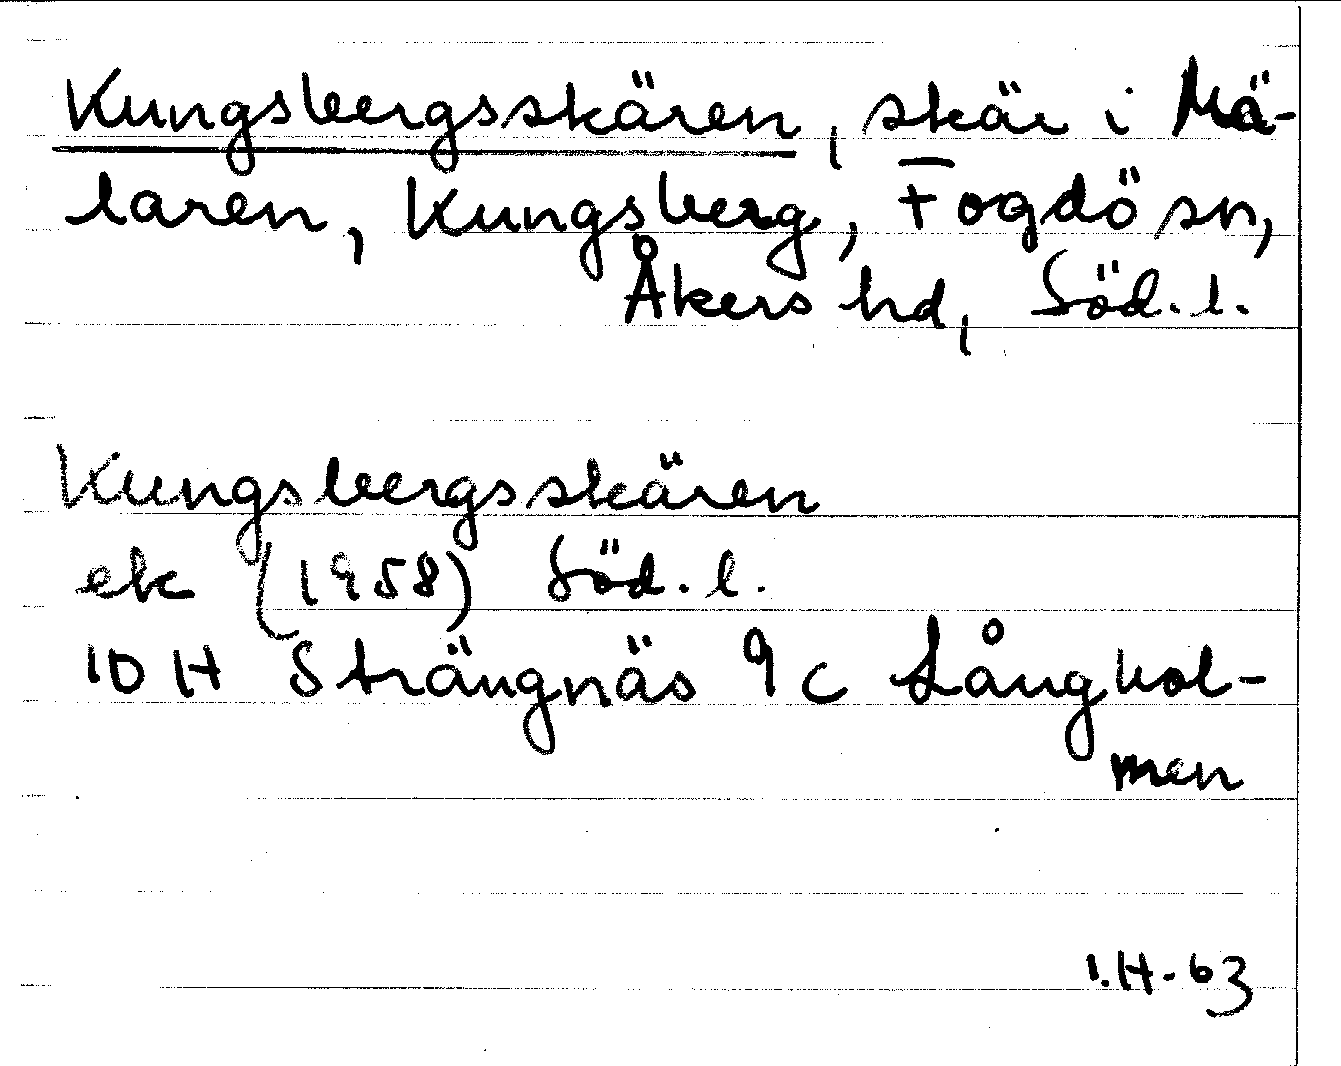 Kungsbergsskären, skär i Mä-
laren, Kungsberg, Fogdö sn,
Åkers hd, Söd. l.
Kungsbergsskären
ek (1958) Söd. l.
10 H Strängnäs 9 c Långhol-
men
I.H-63